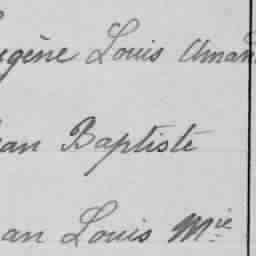 ugène Louis Aman
ean Baptiste
an Louis Mie